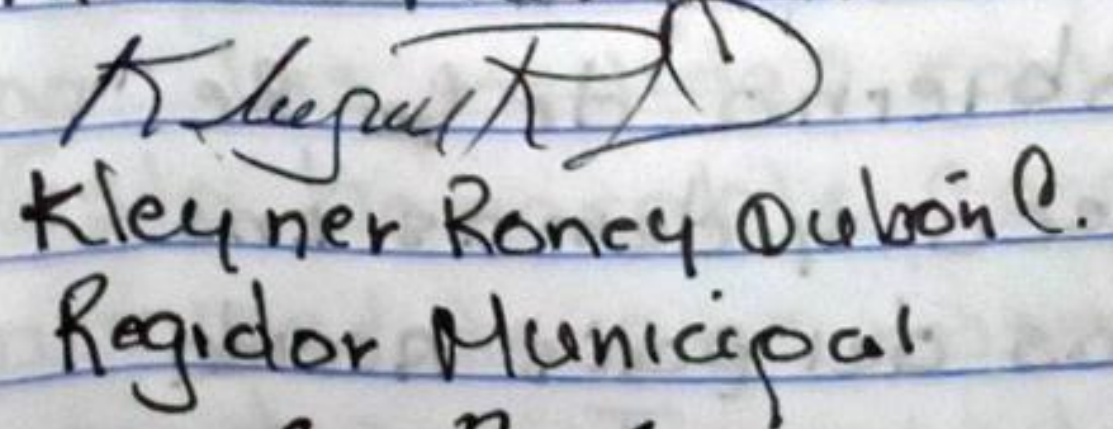 Kleyner Roney Dubón C.
Regidor Municipal